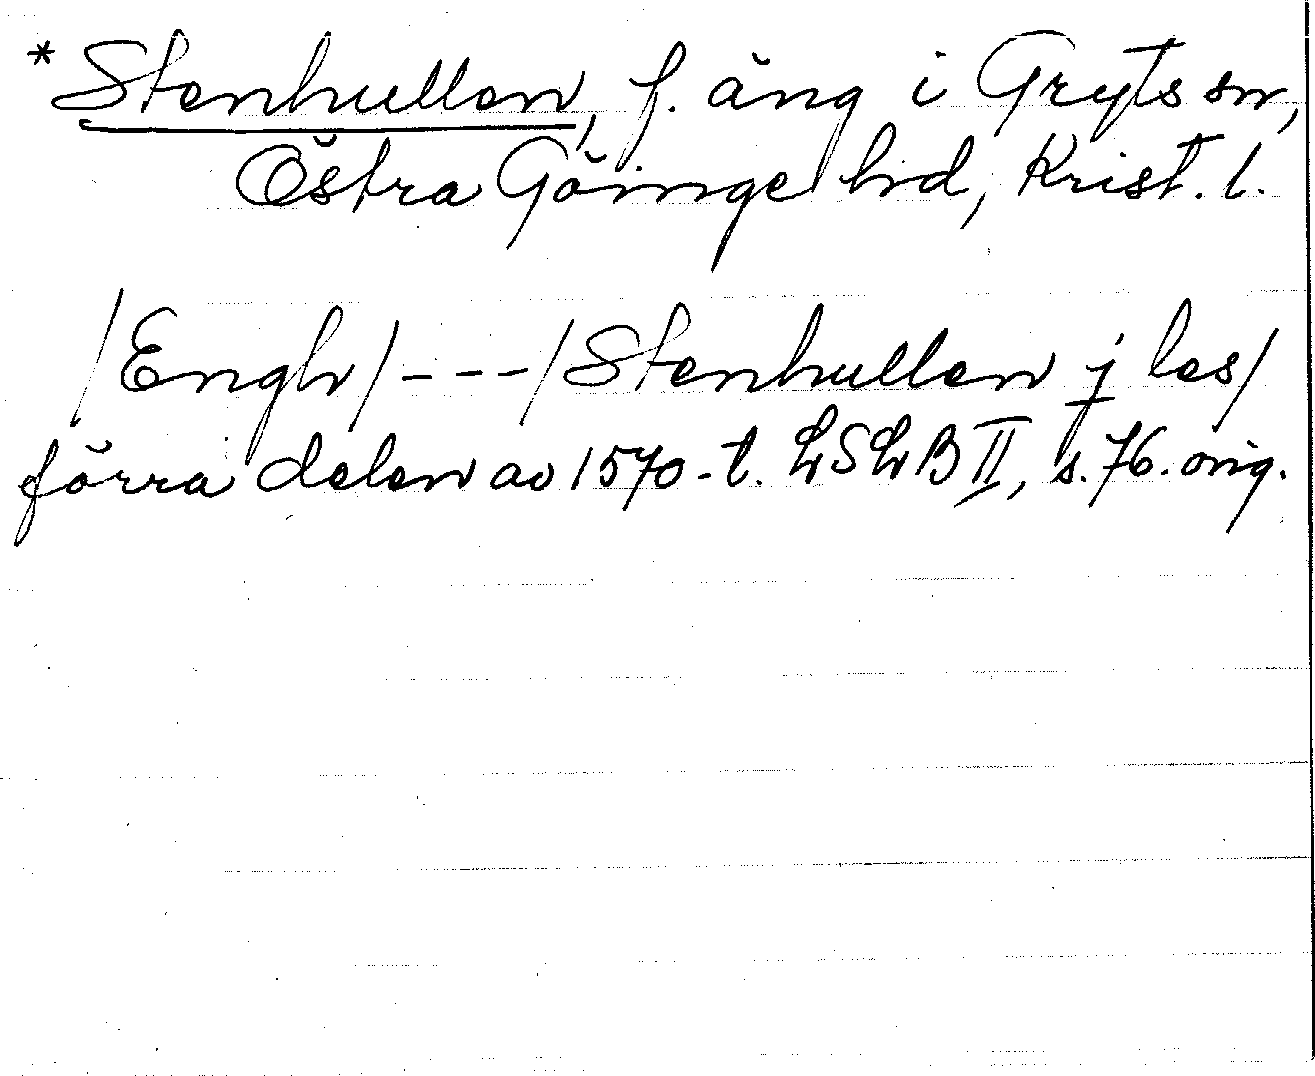 * Stenhullen, f. äng i Gryts sn,
Östra Göinge hd, Krist. l.
/Engh/ --- /Stenhullen j les/
förra delen av 1570-t. LSLB II, s. 76. orig.